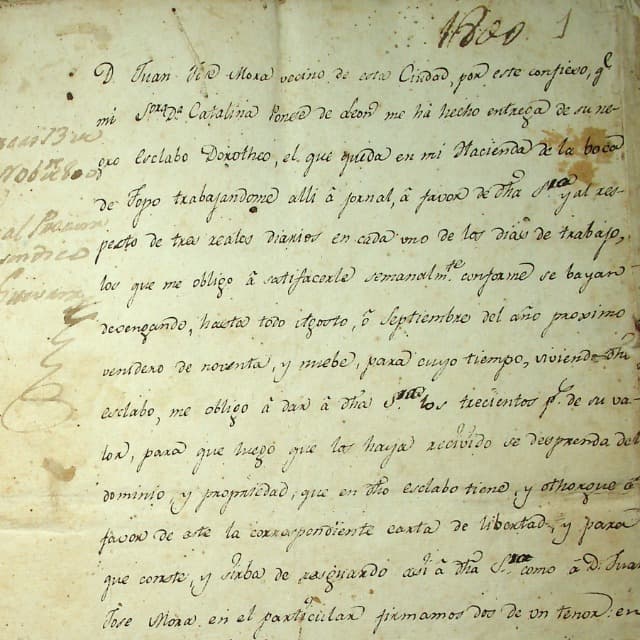 1800 1
D. Juan Jose Mora vecino de esta Ciudad, por este confieso, q.e
mi S.ra D.a Catalina Ponse de Leon me há hecho entrega de su ne-
gro Esclabo Dorotheo, el que queda en mi Hacienda de la boca
de Toyo trabajandome alli â jornal, â favor de dha S.ra y al res-
pecto de tres reales diarios en cada uno de los dias de trabajo,
los que me obligo â satisfacerle semanalm.te conforme se bayan
devengando, hasta todo Agosto, ô Septiembre del año proximo
venidero de noventa, y nuebe, para cuyo tiempo, viviendo dho
esclabo, me obligo â dar â dha S.ra los trecientos p.s de su va-
lor, para que luego que los haya recivido se desprenda del
dominio, y propriedad, que en dho esclabo tiene, y othorgue â
favor de este la correspondiente carta de libertad, y para
que conste, y sirba de resguardo asi â dha S.ra como â D. Juan
Jose Mora en el particular firmamos dos de un tenor en